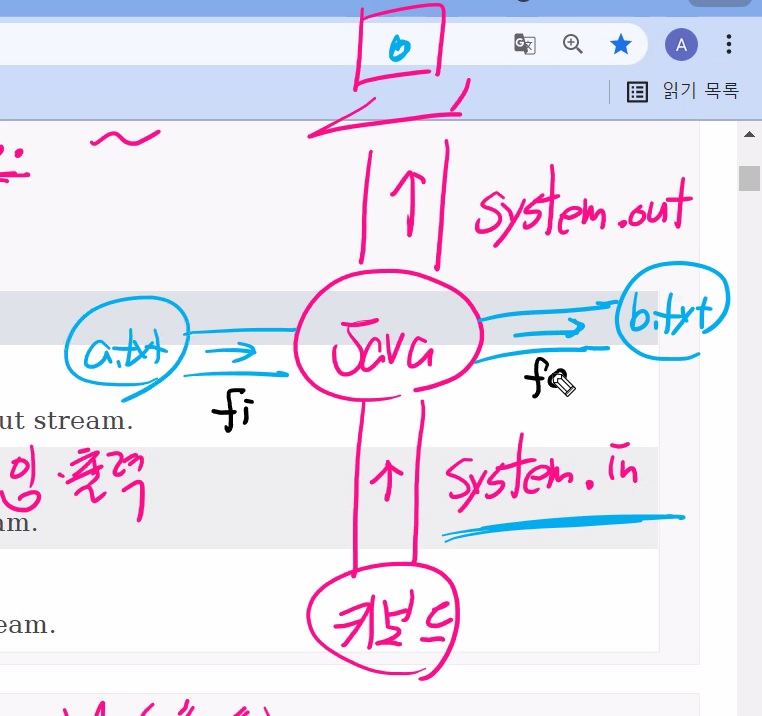 A
읽기 목록
system.out
a.txt
Java
b.txt
fi
fo
ut stream.
입·출력
system.in
am.
키보드
eam.